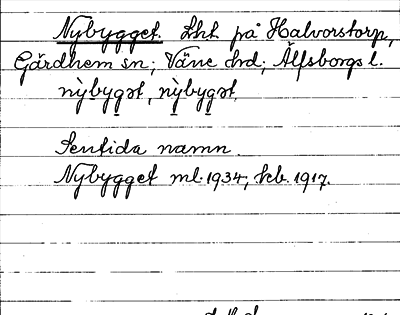 Nybygget. Lht. på Halvorstorp,
Gärdhem sn; Väne hd; Älfsborgs l.
nỳbygət, nỳbygət.
Sentida namn.
Nybygget ml. 1934, kb. 1917.